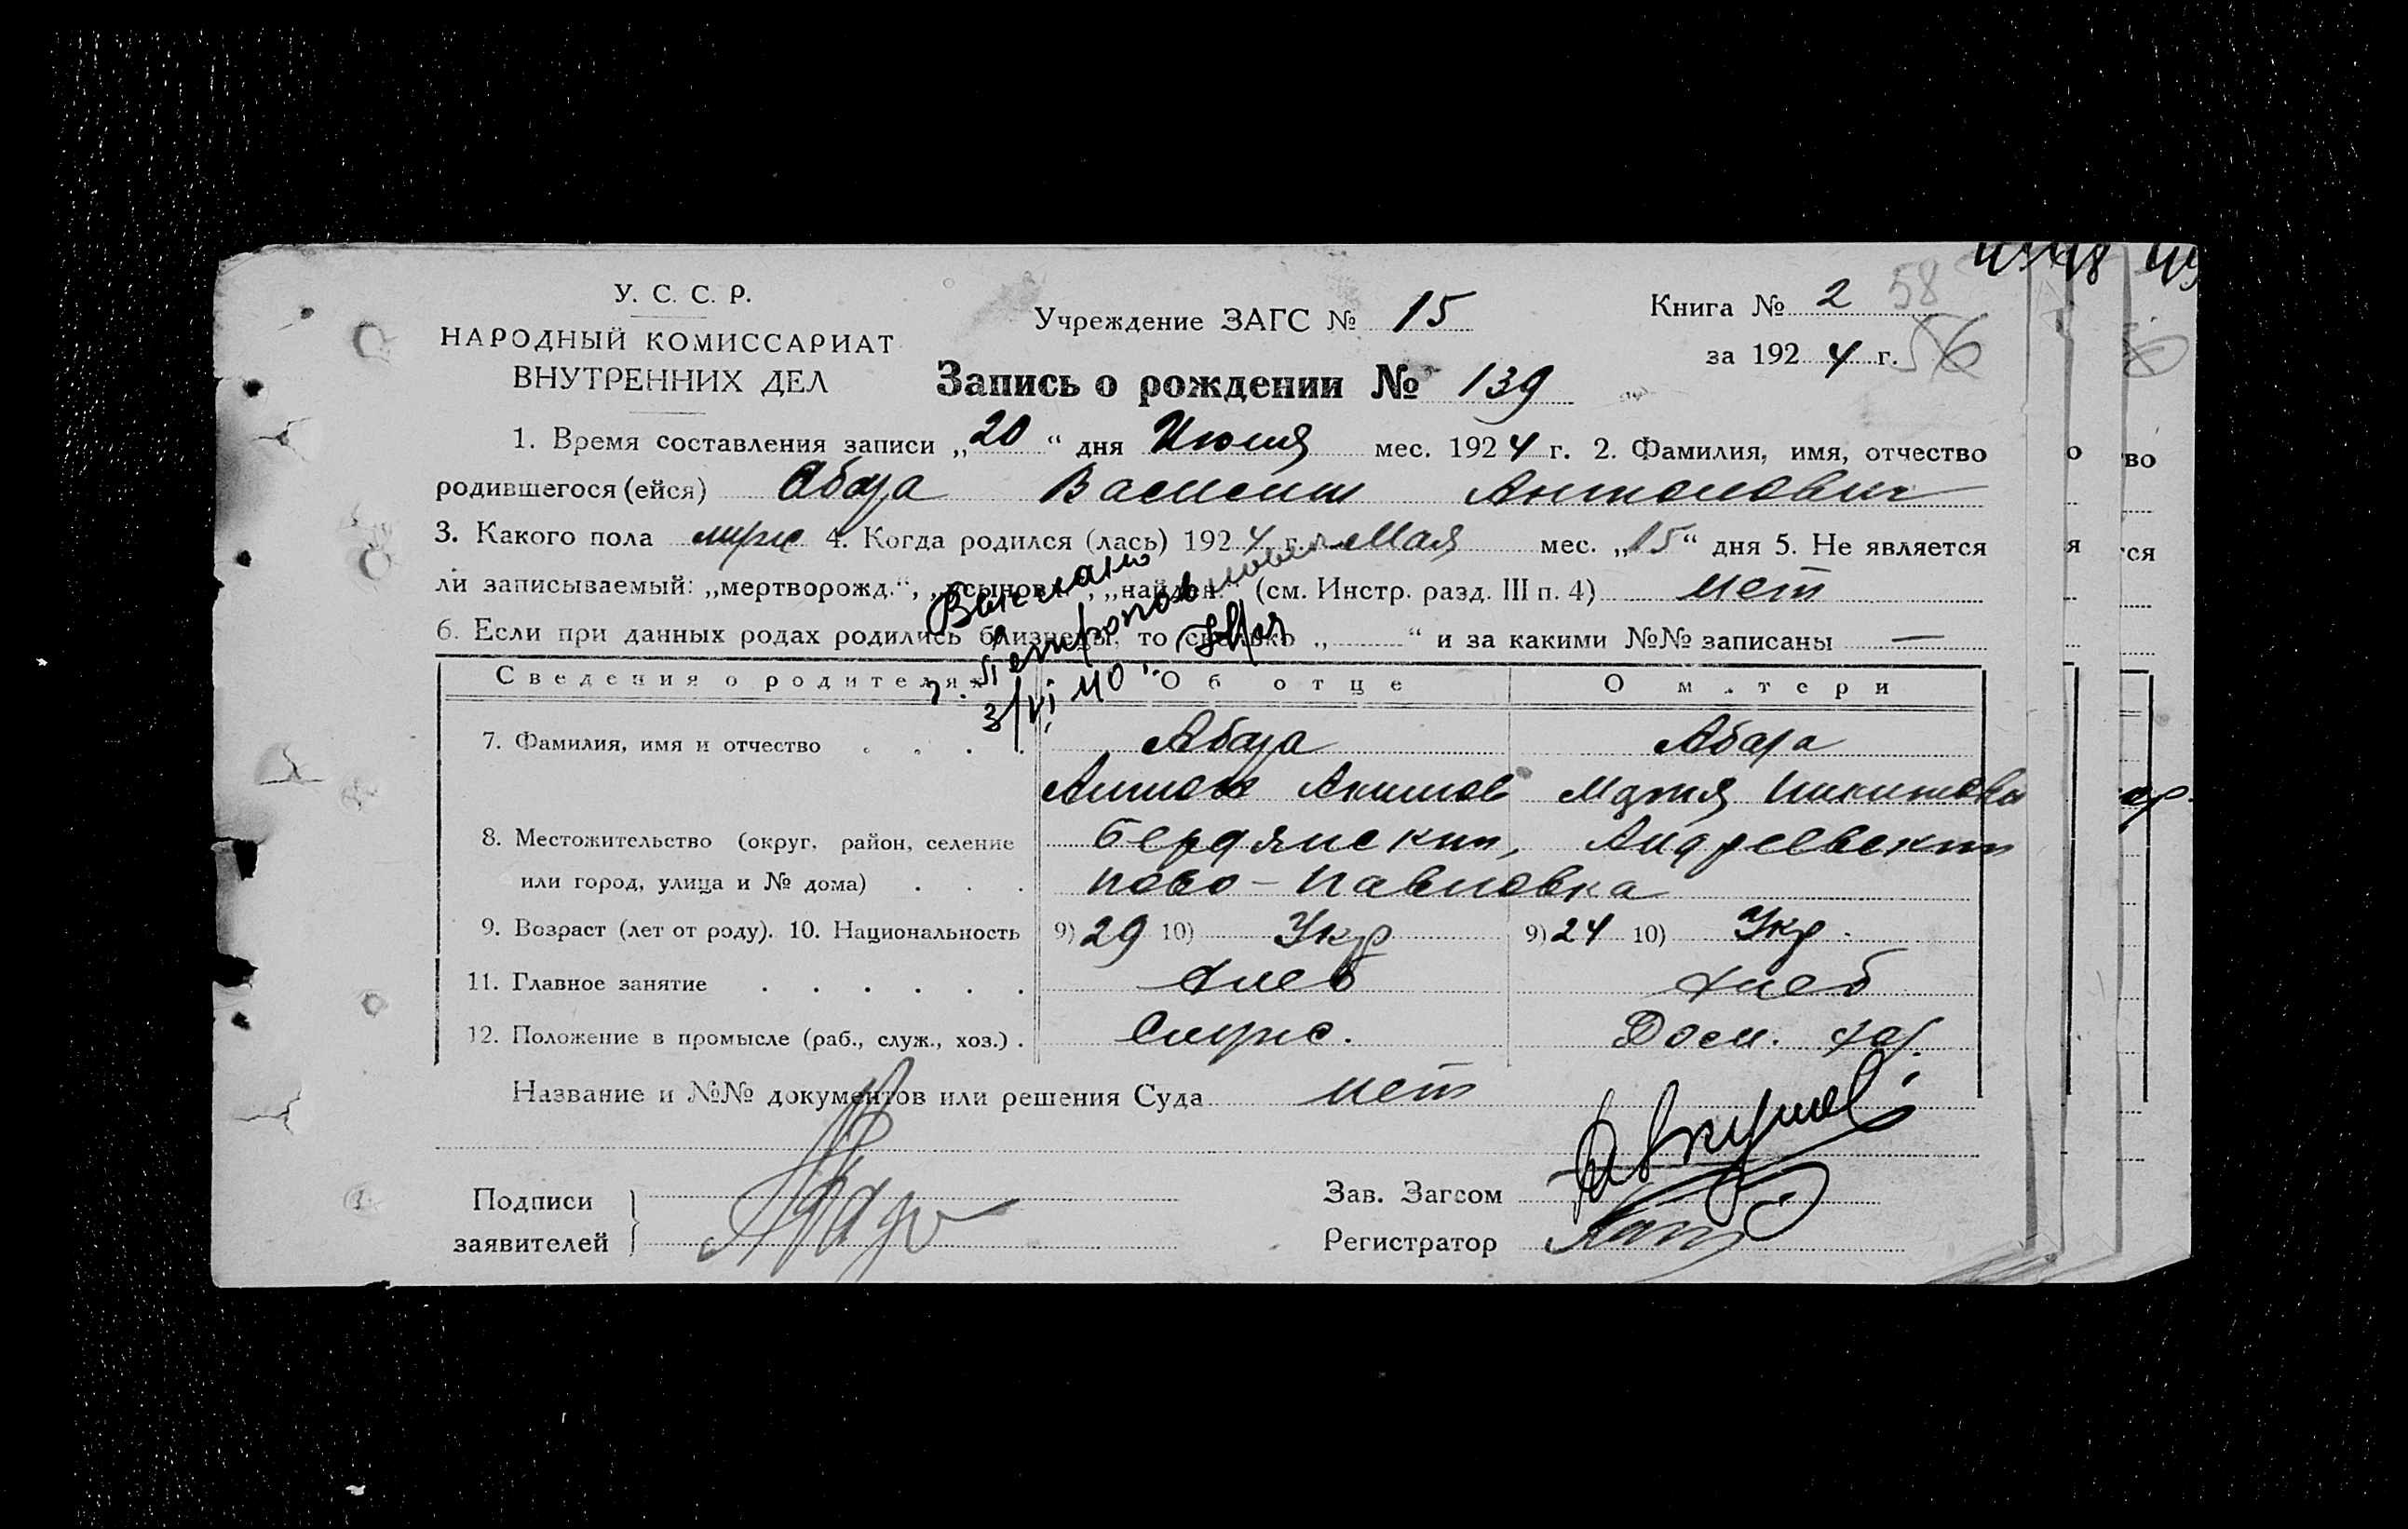 У. С. С. Р.
НАРОДНЫЙ КОМИССАРИАТ
ВНУТРЕННИХ ДЕЛ
Учреждение ЗАГС № 15
Книга № 2 58
за 1924 г. 56
Запись о рождении № 139
1. Время составления записи „20“ дня Июня мес. 1924 г. 2. Фамилия, имя, отчество
родившегося (ейся) Абаза Василий Антонович
3. Какого пола мужс 4. Когда родился (лась) 1924 г. Мая мес. „15“ дня 5. Не является
ли записываемый: „мертворожд.“, „усыновл.“, „найден.“ (см. Инстр. разд. III п. 4) нет
6. Если при данных родах родились близнецы, то сколько „ “ и за какими №№ записаны —
Выслано
г. Петропавловск
3/VI 40 г.
Сведения о родителях Об отце О матери
7. Фамилия, имя и отчество Абаза Абаза
Антон Акимов Мария Никитовна
8. Местожительство (округ, район, селение Бердянский, Андреевский
или город, улица и № дома) Ново-Павловка
9. Возраст (лет от роду). 10. Национальность 9) 29 10) Укр 9) 24 10) Укр.
11. Главное занятие хлеб хлеб
12. Положение в промысле (раб., служ., хоз.) Служ. Дом. хоз.
Название и №№ документов или решения Суда нет
Подписи
заявителей
Зав. Загсом
Регистратор